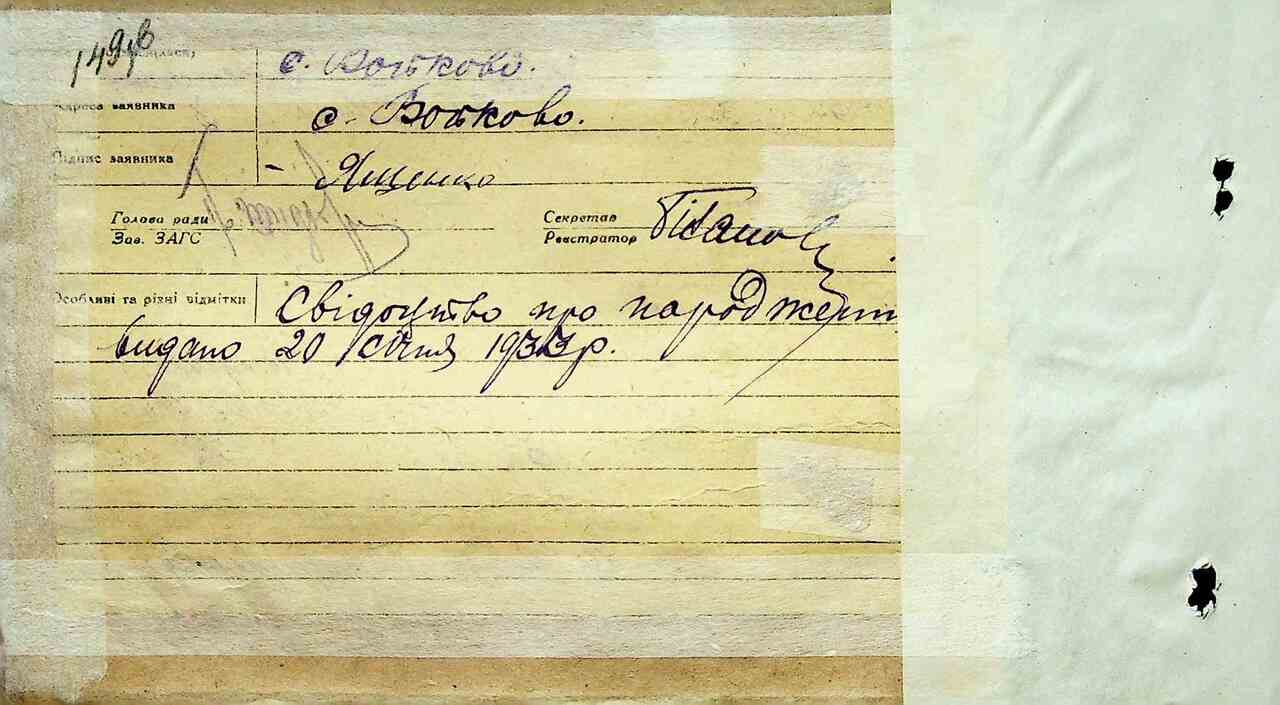 с. Вовково.
Адреса заявника с. Вовково.
Підпис заявника - Ященко
Голова ради Секретар
Зав. ЗАГС Реєстратор
Особливі та різні відмітки Свідоцтво про народженн
видано 20 січня 1933р.